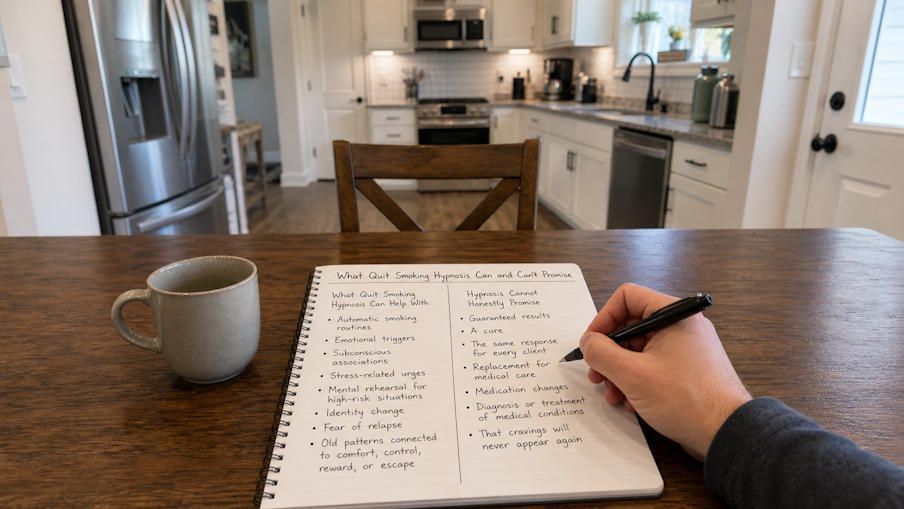 What Quit Smoking Hypnosis Can and Can't Promise
What Quit Smoking
Hypnosis Can Help With
• Automatic smoking
routines
• Emotional triggers
• Subconscious
associations
• Stress-related urges
• Mental rehearsal for
high-risk situations
• Identity change
• Fear of relapse
• Old patterns connected
to comfort, control,
reward, or escape
Hypnosis Cannot
Honestly Promise
• Guaranteed results
• A cure
• The same response
for every client
• Replacement for
medical care
• Medication changes
• Diagnosis or treatment
of medical conditions
• That cravings will
never appear again